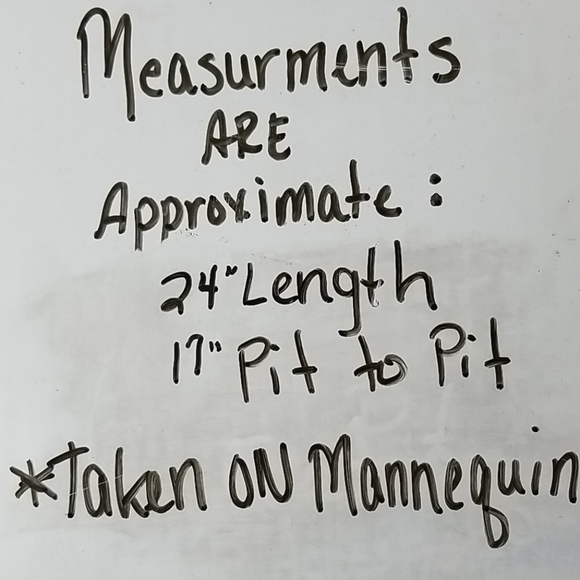 Measurments
ARE
Approximate:
24" Length
17" Pit to Pit
*Taken ON Mannequin